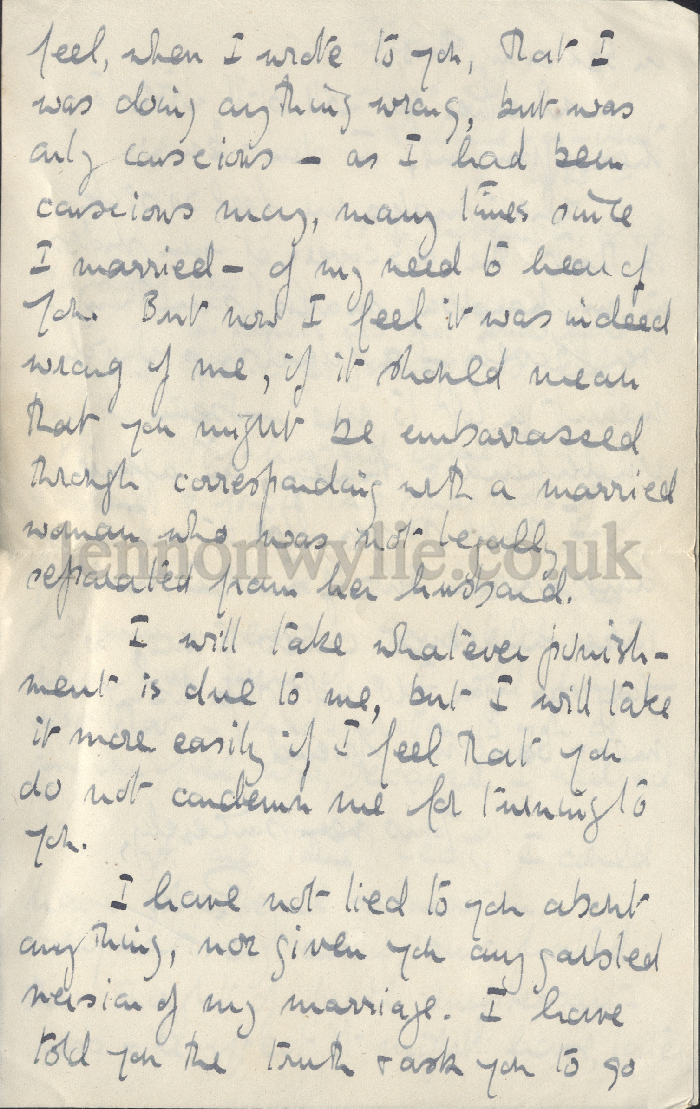 feel, when I wrote to you, that I
was doing anything wrong, but was
only conscious – as I had been
conscious many, many times since
I married – of my need to hear of
you. But now I feel it was indeed
wrong of me, if it should mean
that you might be embarrassed
through corresponding with a married
woman who was not legally
lennonwylie.co.uk
separated from her husband.
I will take whatever punish-
ment is due to me, but I will take
it more easily if I feel that you
do not condemn me for turning to
you.
I have not lied to you about
anything, nor given you any garbled
version of my marriage. I have
told you the truth + ask you to go